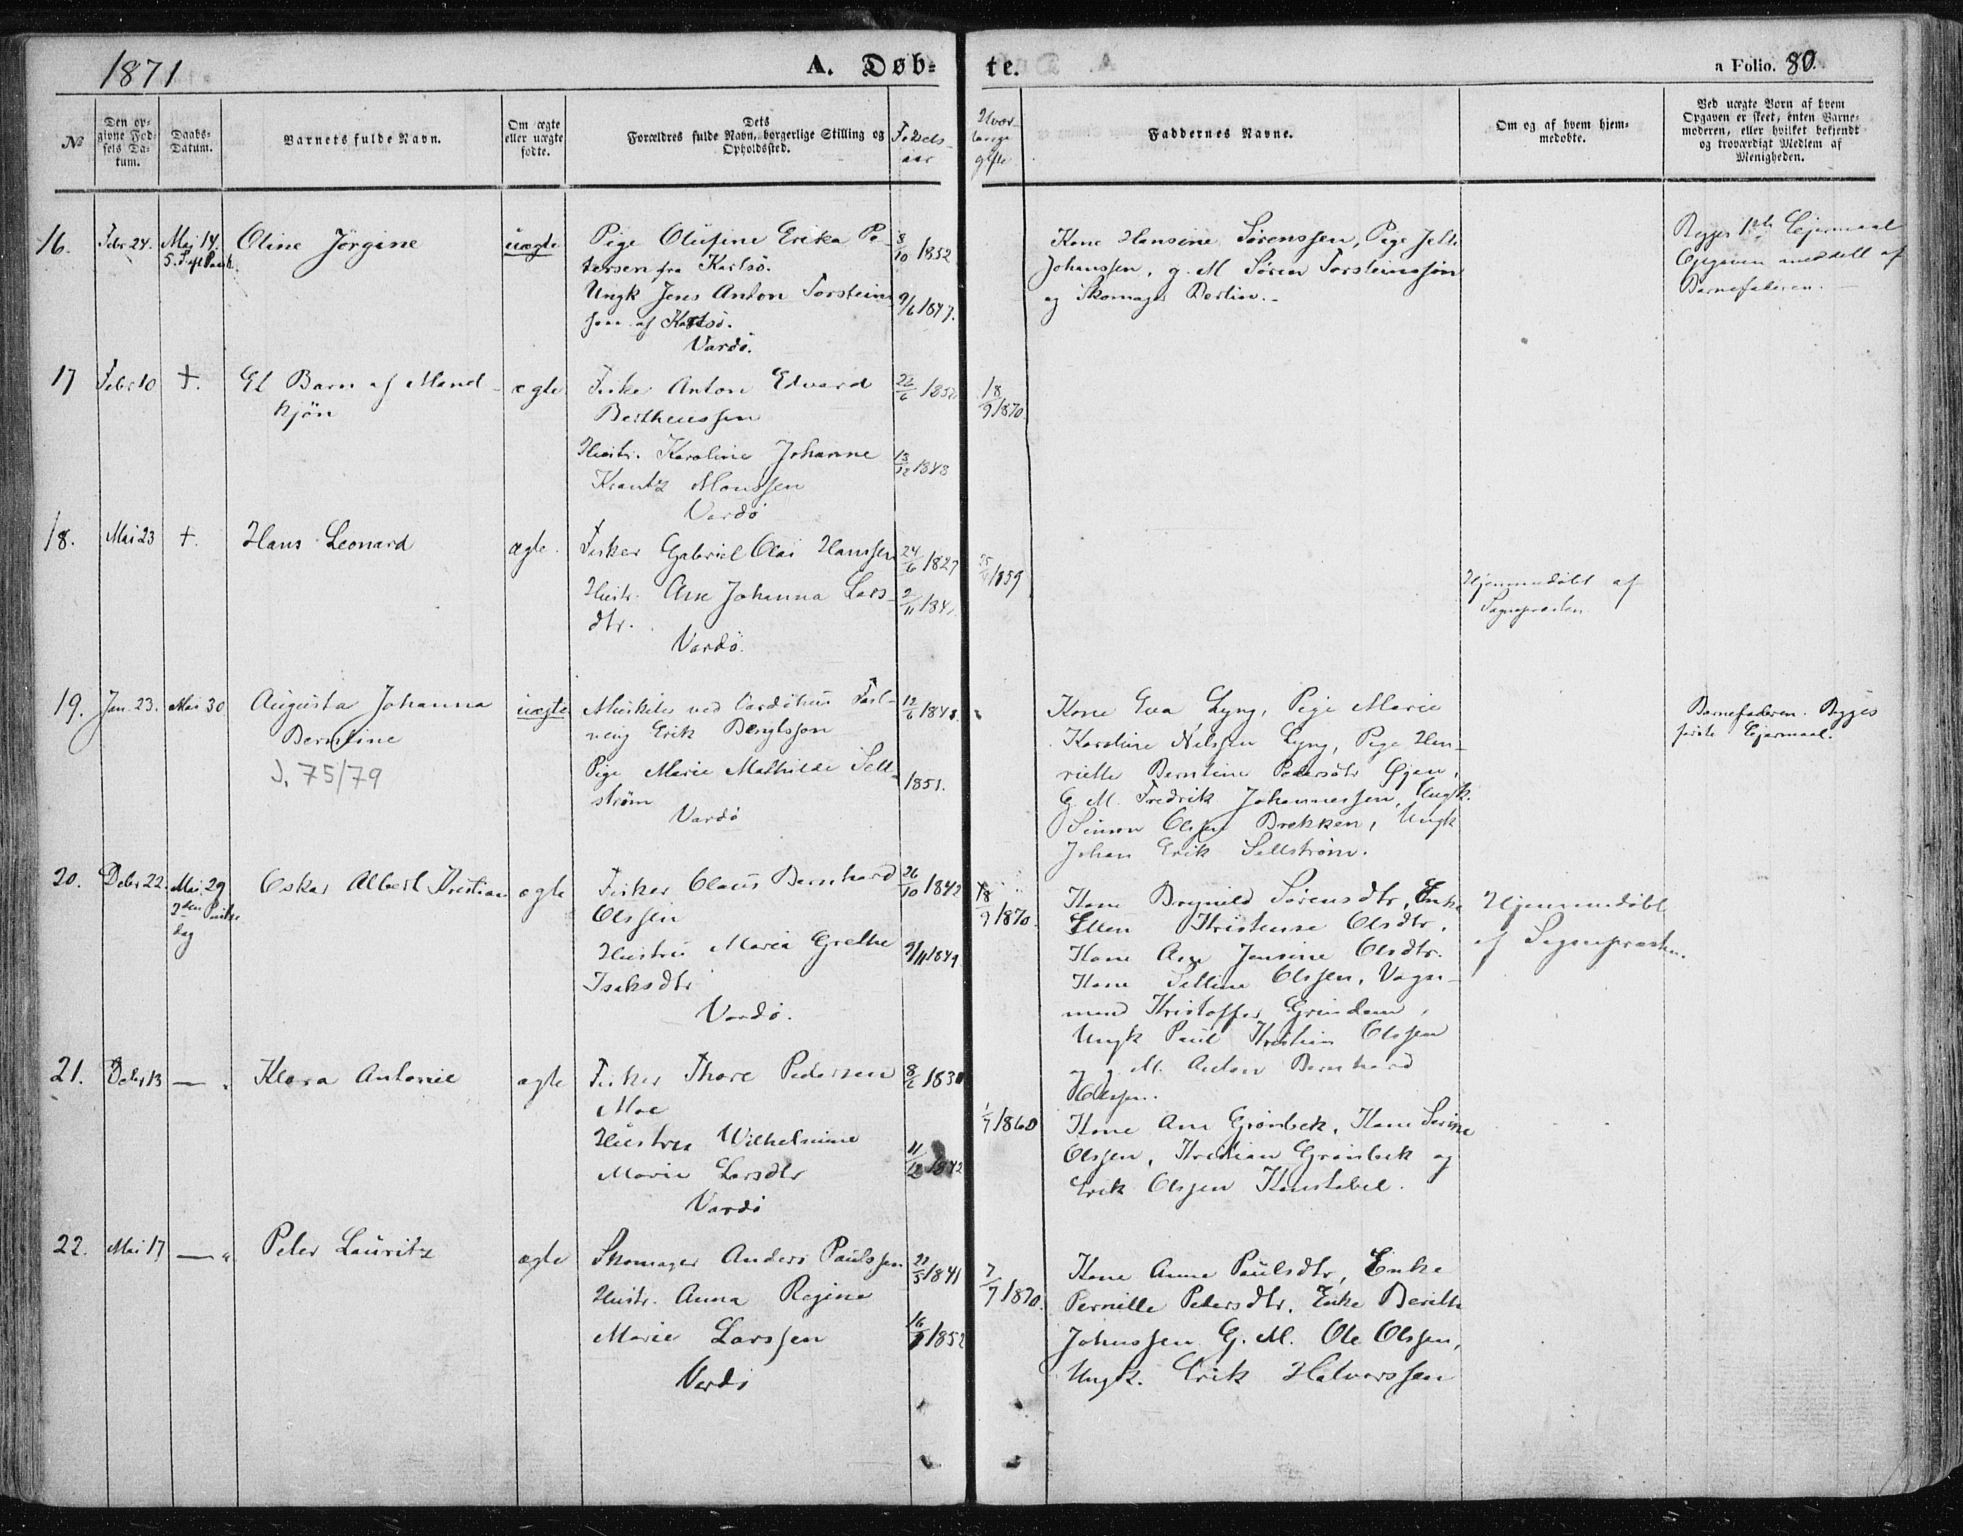 1871
A. Døb-
te.
a Folio. 80.
№
Den op-
givne Fød-
sels Da-
tum.
Daabs-
Datum.
Barnets fulde Navn.
Om ægte
eller uægte
fødte.
Dets
Forældres fulde Navn, borgerlige Stilling og
Opholdssted.
Fødsels-
aar
Faddernes Navne.
Om og af hvem hjem-
medøbte.
Ved uægte Børn af hvem
Opgaven er skeet, enten Barne-
moderen, eller hvilket bekjendt
og troværdigt Medlem af
Menigheden.
16.
Febr 24.
Mai 14.
Oline Jørgine
uægte
Pige Olufine Erika Pe-
tersen fra Karlsö.
Ungk Jens Anton Torstein
sen af Karlsö.
Vardö.
8/10 1852
9/6 1847.
Kone Hansine Sørenssen, Pige
Johanssen, g. M. Sören Torsteinssön
og Skomager
Opgaven meddelt af
Barnefaderen.
17
Febr 10
+.
Et Barn af Mand-
kjön
ægte
Fisker Anton Edvard
Bertheussen
Hustr. Karoline Johanne
Krantz Monssen
Vardö
13/12 1848
18/9 1870.
18.
Mai 23
+.
Hans Leonard
ægte.
Fisker Gabriel Olai Hanssen
Hustr. Ane Johanna Lars-
dtr.
Vardö.
24/6 1827
1859
Hjemmedöbt af
Sognepresten
19.
Jan. 23.
Mai 30
Augusta Johanna
Berntine
J. 75/79
uægte
ved Vardöhus Fæst-
ning Erik Bengtsson
Pige Marie Mathilde Sell-
ström
Vardö
12/6 1848
1851.
Kone Eva Lyng, Pige Marie
Karoline Nilssen Lyng, Pige Hen-
riette Berntine Pedersdtr Øjen,
G. M. Fredrik Johannessen, Ungk.
Simon Olsen Brekken, Ungk
Johan Erik Sellström.
Barnefaderen. Begges
første Lejermaal.
20.
Debr 22.
Mai 29
2den Pintse
dag
Oskar Albert Kristian
ægte
Fisker Olaus Bernhard
Olssen
Hustru Maria Grethe
Isaksdtr
Vardö.
26/10 1842
9/11 1849
18/9 1870.
Kone Brynild Sørensdtr, Enke
Ellen Kristense Olsdtr,
Kone Ane Jensine Olsdtr.
Kone Olssen, Vogn-
mand Kristoffer Grindem,
Ungk Paul Kristian Olssen
og g. M. Anton Bernhard
Olssen.
Hjemmedöbt
af Sognepresten.
21.
Debr 13
— "
Klara Antonie
ægte
Fisker Thore Pedersen
Moe
Hustru Wilhelmine
Marie Larsdtr
Vardö
11/12 1842
1/7 1860
Kone Ane Grönbek, Kone Serine
Olssen, Kristian Grönbek og
Erik Olssen Konstabel.
22.
Mai 17
— "
Peter Lauritz
ægte
Skomager Anders Paulssen
Hustr. Anna Regine
Marie Larssen
Vardö
1841
1852
7/7 1870.
Kone Anna Paulsdtr, Enke
Pernille Petersdtr, Enke Berith
Johnssen G. M. Ole Olssen,
Ungk. Erik Halvorssen